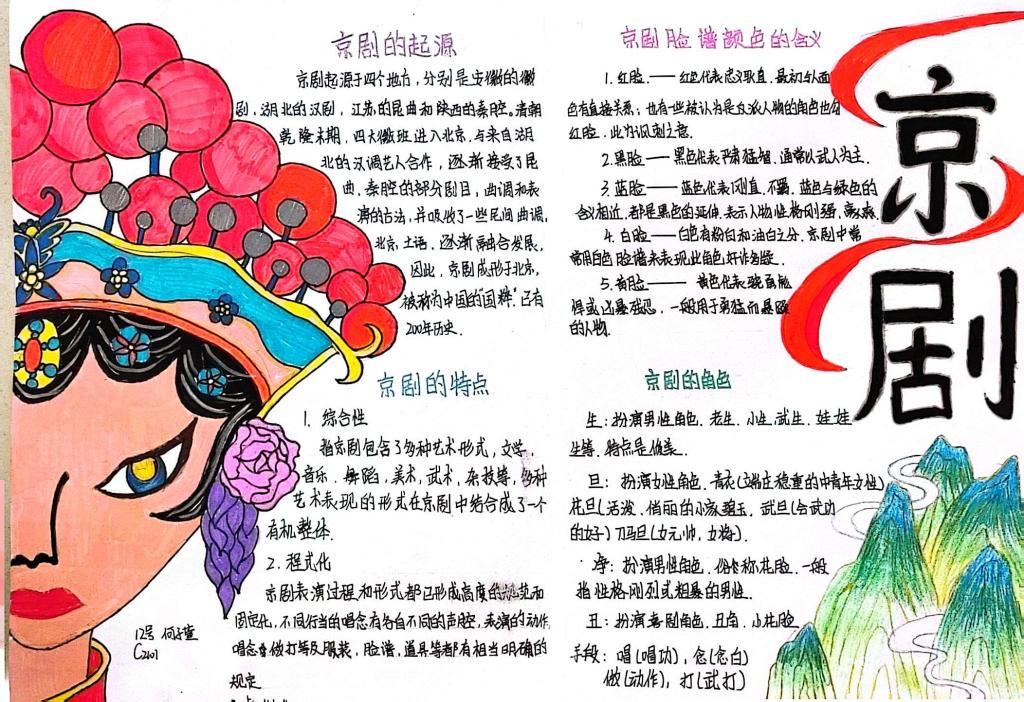 京剧的起源
京剧起源于四个地方，分别是安徽的徽
剧，湖北的汉剧，江苏的昆曲和陕西的秦腔。清朝
乾隆末期，四大徽班进入北京，与来自湖
北的汉调艺人合作，逐渐接受了昆
曲，秦腔的部分剧目，曲调和表
演的方法，并吸收了一些民间曲调，
北京土语，逐渐融合发展。
因此，京剧成形于北京，
被称为中国的"国粹"已有
200年历史.
京剧的特点
1. 综合性
指京剧包含了多种艺术形式，文学，
音乐.舞蹈，美术，武术，杂技等，多种
艺术表现的形式在京剧中结合成了一个
有机整体.
2. 程式化
京剧表演过程和形式都已形成高度的规范和
固定化，不同行当的唱念有各自不同的声腔，表演的动作，
唱念做打等及服装，脸谱，道具等都有相当明确的
规定
12号 何子萱
C2401
京剧脸谱颜色的含义
1. 红脸. —— 红色代表忠义耿直.最初与面
色有直接关系；也有一些被认为是反派人物的角色也勾
红脸，此为讽刺之意.
2. 黑脸 —— 黑色代表严肃猛智.通常以武人为主.
3. 蓝脸 —— 蓝色代表刚直.不羁.蓝色与绿色的
含义相近.都是黑色的延伸.表示人物性格刚强.
4. 白脸 —— 白色有粉白和油白之分.京剧中常
常用白色脸谱来表现此角色奸诈多疑.
5. 黄脸 —— 黄色代表骁勇
一般用于勇猛而暴躁
的人物.
京剧的角色
生：扮演男性角色.老生.小生.武生.娃娃
生等.特点是俊美.
旦：扮演女性角色.青衣（端庄稳重的中青年女性）
花旦（活泼.俏丽的小家碧玉，武旦（会武功
的女子）刀马旦（女元帅，女将）.
净：扮演男性角色.俗称花脸.一般
指性格刚烈或粗暴的男性.
丑：扮演喜剧角色.丑角.小花脸
手段：唱（唱功），念（念白）
做（动作），打（武打）
京
剧